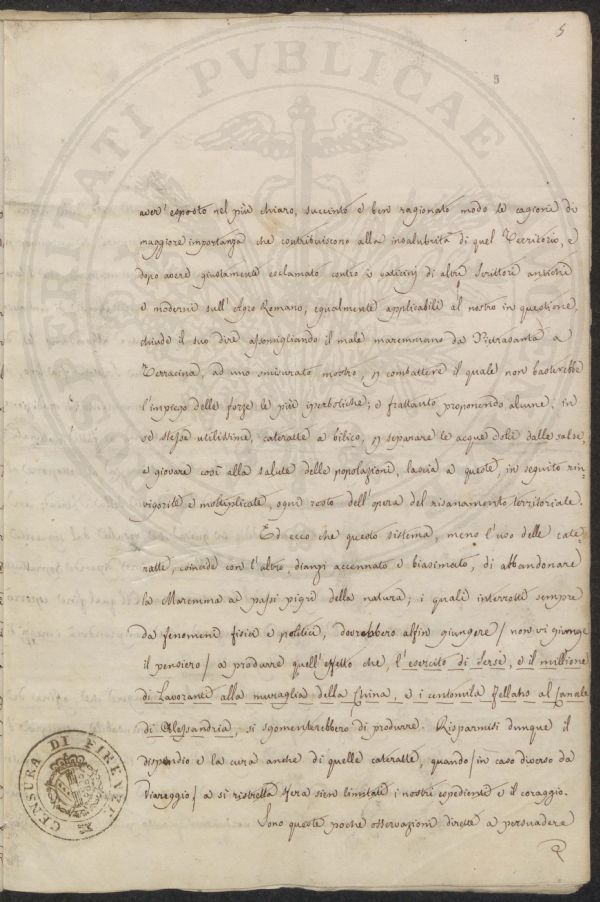 5
5
aver' esposto nel più chiaro, succinto e ben ragionato modo le cagioni di
maggiore importanza che contribuiscono alla insalubrità di quel Territorio, e
dopo avere giustamente esclamato contro i vaticinj di altri Scrittori antichi
e moderni sull' Agro Romano, egualmente applicabili al nostro in questione,
chiude il suo dire assomigliando il male maremmano da Pietrasanta a
Terracina, ad uno smisurato mostro, p combattere il quale non basterebbe
l'impiego delle forze le più iperboliche; e frattanto proponendo alcune, in
se stesse utilissime, cateratte a bilico, p separare le acque dolci dalle salse,
e giovare così alla salute delle popolazioni, lascia a queste, in seguito rin-
vigorite e moltiplicate, ogni resto dell'opera del risanamento territoriale.
Ed ecco che questo sistema, meno l'uso delle cate-
ratte, coincide con l'altro, dianzi accennato e biasimato, di abbandonare
la Maremma ai passi pigri della natura; i quali interrotti sempre
da fenomeni fisici e politici, dovrebbero alfin giungere / non vi giunge
il pensiero / a produrre quell'effetto che, l'esercito di Serse, e il millione
di Lavoranti alla muraglia della China, e i centomila Fellahs al Canale
di Alessandria, si sgomenterebbero di produrre. Risparmisi dunque il
dispendio e la cura anche di quelle cateratte, quando / in caso diverso da
Viareggio / a sì ristretta sfera sien limitati i nostri espedienti e il coraggio.
Sono queste poche osservazioni dirette a persuadere
PROSPERITATI PVBLICAE
CENSURA DI FIRENZE